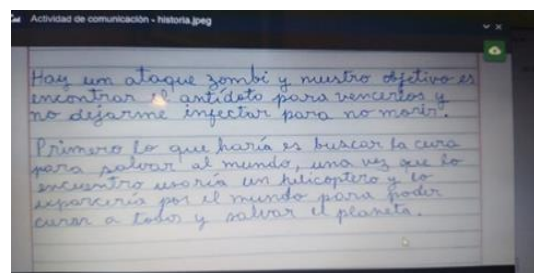 Actividad de comunicación - historia.jpeg
Hay um ataque zombi y nuestro objetivo es
encontrar el antídoto para vencerlos y
no dejarme infectar para no morir.
Primero lo que haría es buscar la cura
para salvar al mundo, una vez que lo
encuentro usaría un helicoptero y lo
esparcería por el mundo para poder
curar a todos y salvar el planeta.